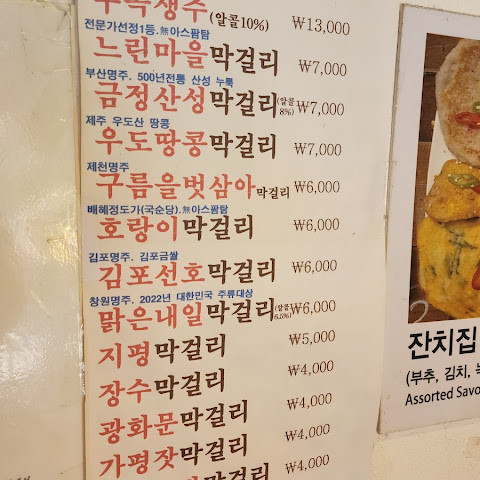 (알콜10%) ₩13,000
전문가선정1등.無아스팜탐
느린마을막걸리 ₩7,000
부산명주. 500년전통 산성 누룩
금정산성막걸리(알콜 8%) ₩7,000
제주 우도산 땅콩
우도땅콩막걸리 ₩7,000
제천명주
구름을벗삼아막걸리 ₩6,000
배혜정도가(국순당).無아스팜탐
호랑이막걸리 ₩6,000
김포명주. 김포금쌀
김포선호막걸리 ₩6,000
창원명주. 2022년 대한민국 주류대상
맑은내일막걸리(알콜 6.5%) ₩6,000
지평막걸리 ₩5,000
장수막걸리 ₩4,000
광화문막걸리 ₩4,000
가평잣막걸리 ₩4,000
막걸리 ₩4,000
잔치집
(부추, 김치,
Assorted Savo